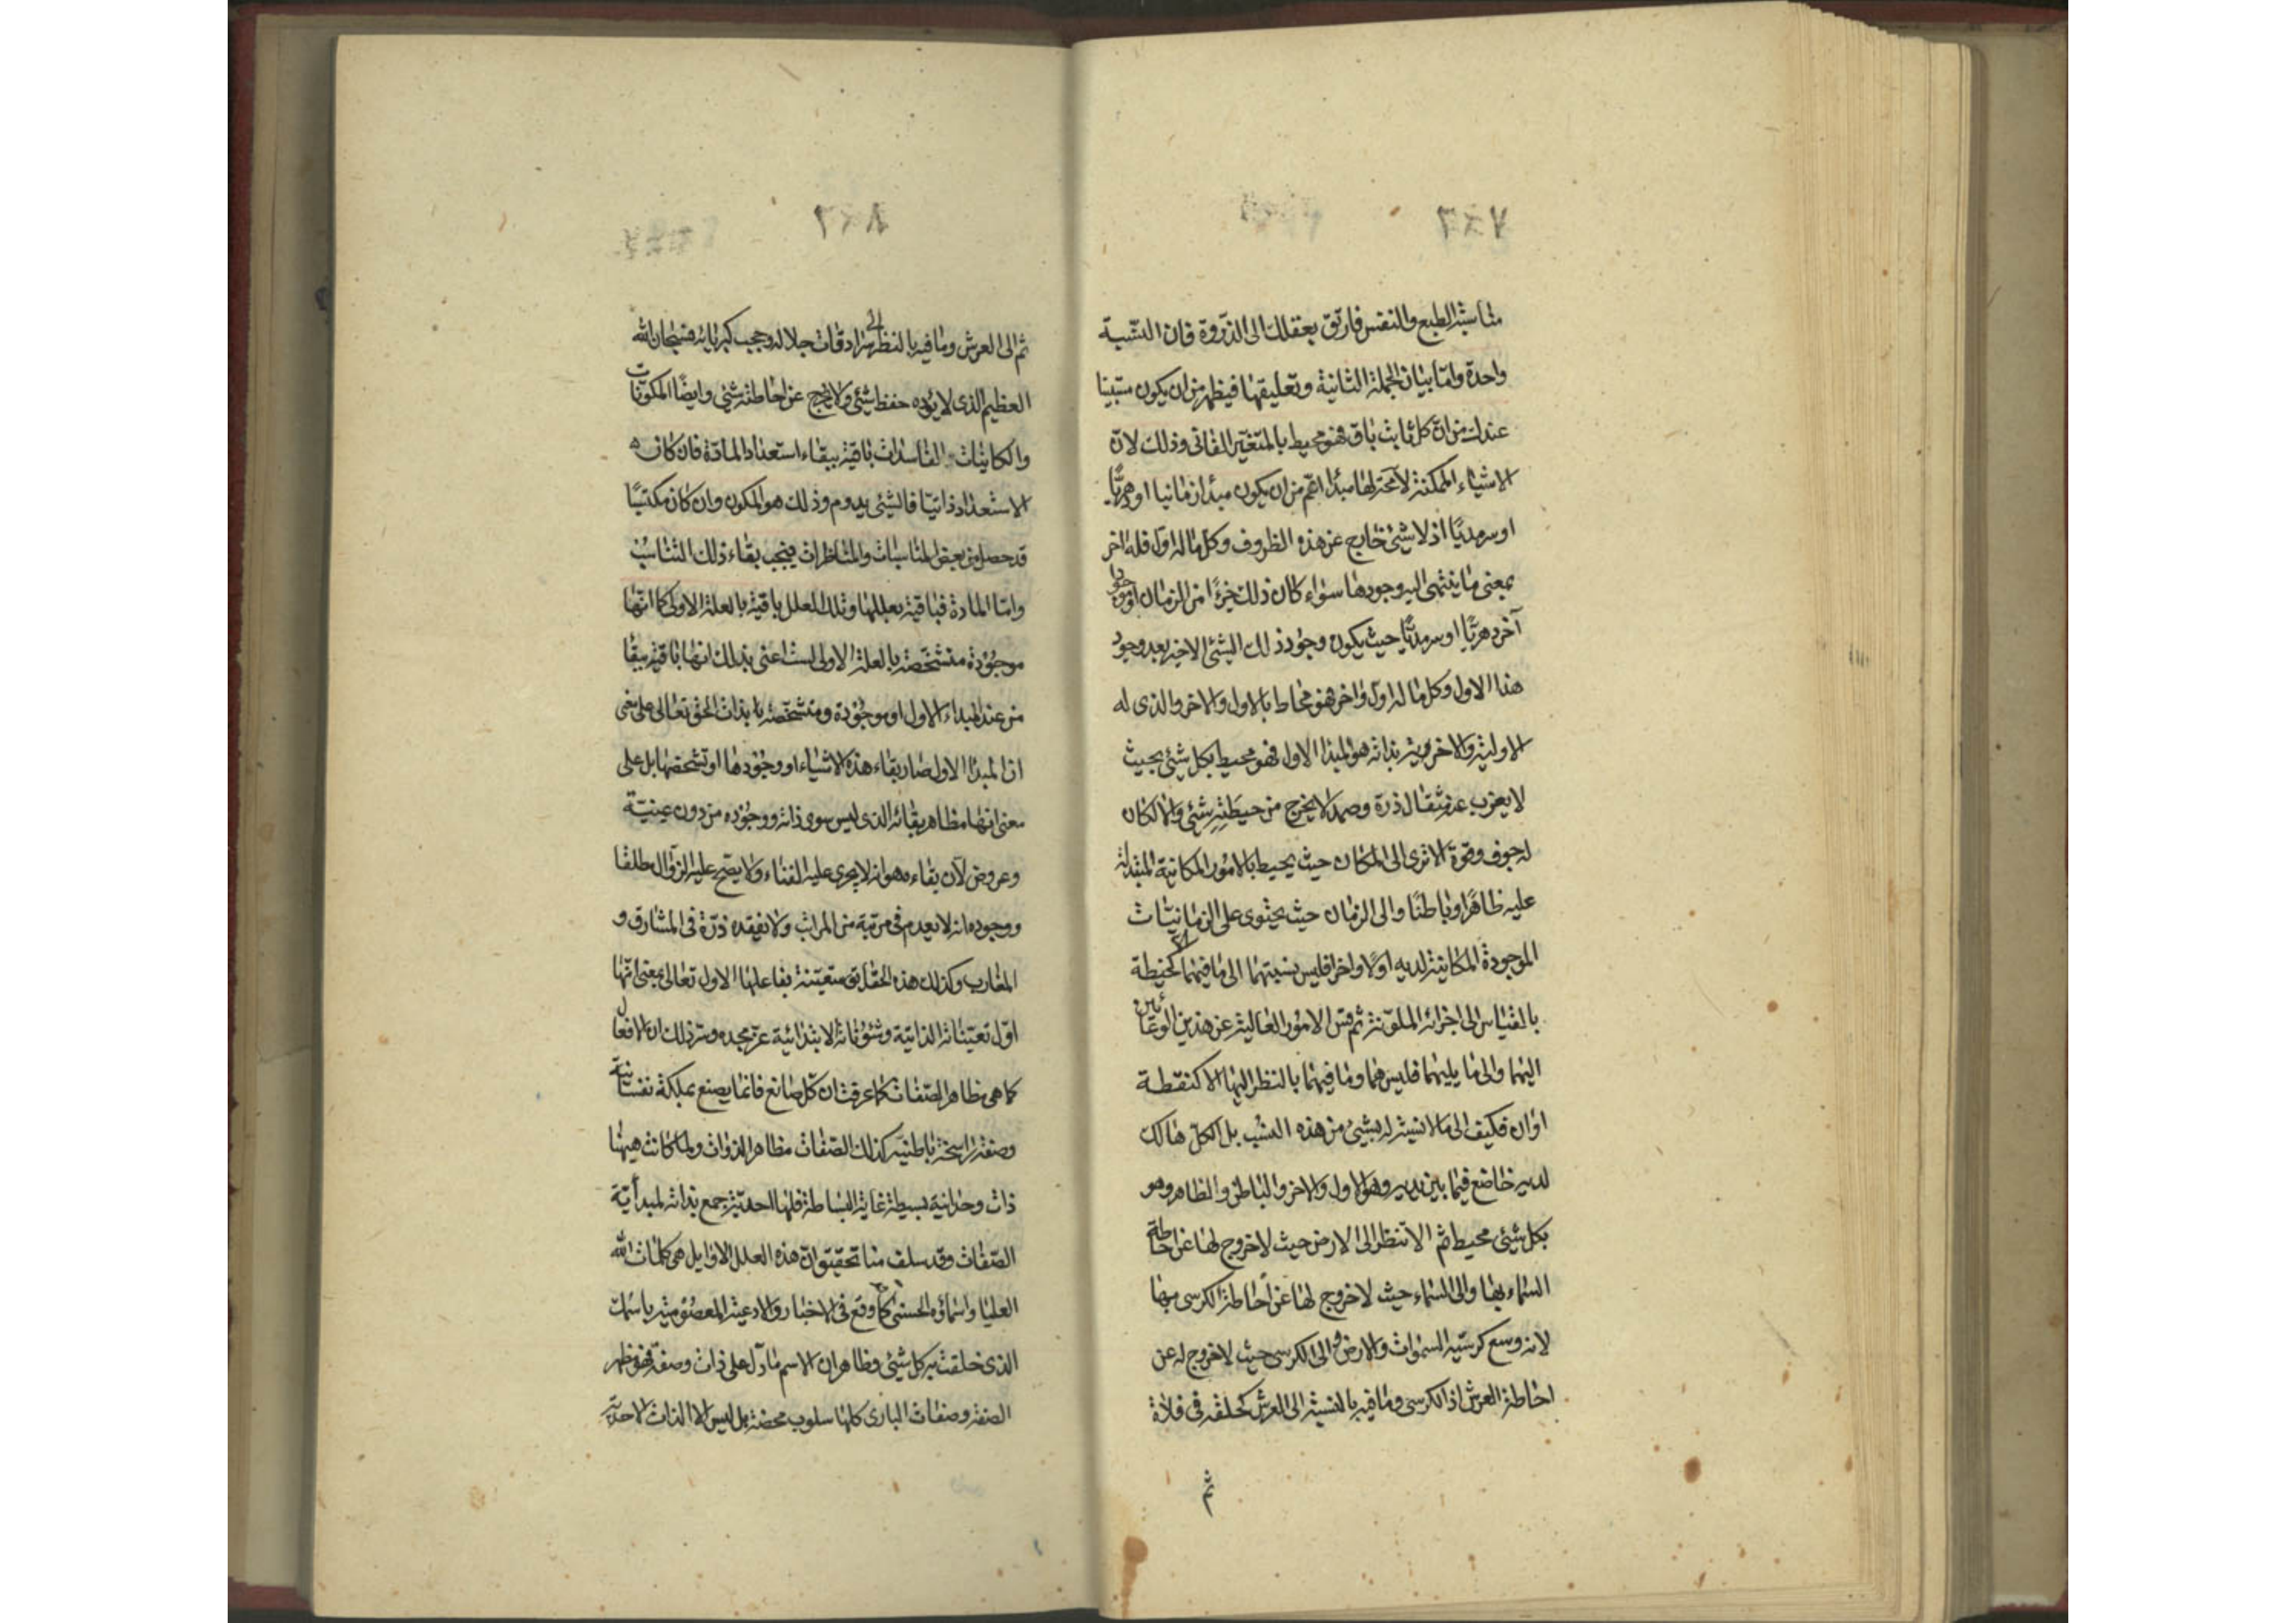 متاسية الطبع والنفس فارتق بعقلك الى الذروة فان النسبة
واحدة واما بيان الجملة الثانية وتعليقها فيظهر من ان يكون متبينا
عندك من ان كل ثابت باق فهو محيط بالمتغير الفانى وذلك لان
الاشياء الممكنة لا محة لها مبدأ اعم من ان يكون مبدأ زمانيا او دهريا
او سرمديا اذ لا شئ خارج عن هذه الظروف وكل ما له اول فله اخر
بمعنى ما ينتهى اليه وجودها سواء كان ذلك جزءا من الزمان او موجودا
آخر دهريا او سرمديا حيث يكون وجود ذلك الشئ الاخير بعد وجود
هذا الاول وكل ما له اول واخر فهو محاط بالاول والاخر والذى له
الاولية والاخروية بذاته هو المبدأ الاول فهو محيط بكل شئ بحيث
لا يعزب عنه مثقال ذرة وصمد لا يخرج من حيطته شئ والا لكان
له جوف وقوة الا ترى الى المكان حيث يحيط بالامور المكانية المتبدلة
عليه ظاهرا وباطنا والى الزمان حيث يحتوى على الزمانيات
الموجودة المكاينة لديه اولا واخرا فليس نسبتهما الى ما فيهما الا كخيطة
بالقياس الى اجزائه الملونة ثم قس الامور العالية عن هذين الوعائين
اليهما والى ما يليهما فليس هما وما فيهما بالنظر اليها الا كنقطة
او ان فكيف الى ما لا نسبة له بشئ من هذه النسب بل الكل هالك
لديه خاضع فيما بين يديه وهو الاول والاخر والباطن والظاهر وهو
بكل شئ محيط ثم الا تنظر الى الارض حيث لا خروج لها عن احاطة
السماء بها والى السماء حيث لا خروج لها عن احاطة الكرسى بها
لانه وسع كرسيه السموات والارض والى الكرسى حيث لا خروج له عن
احاطة العرش اذ الكرسى وما فيه بالنسبة الى العرش كحلقة فى فلاة
ثم
ثم الى العرش وما فيه بالنظر الى سرادقات جلاله وحجب كبريائه فسبحان الله
العظيم الذى لا يؤده حفظ شئ ولا يخرج عن احاطته شئ وايضا المكونات
والكاينات الفاسدات باقية ببقاء استعداد المادة فان كان
الاستعداد ذاتيا فالشئ يدوم وذلك هو المكون وان كان مكتسبا
قد حصل من بعض المناسبات والمناظرات فيجب بقاء ذلك التناسب
واما المادة فباقية بعللها وتلك العلل باقية بالعلة الاولى كما انها
موجودة متشخصة بالعلة الاولى لست اعنى بذلك انها باقية ببقا
من عند المبداء الاول او موجودة ومتشخصة بذات الحق تعالى على معنى
ان المبدأ الاول صار بقاء هذه الاشياء او وجودها او تشخصها بل على
معنى انها مظاهر بقائه الذى ليس سوى ذاته ووجوده من دون عينية
وعروض لان بقاءه هو انه لا يجرى عليه الفناء ولا يصح عليه الزوال مطلقا
ووجوده انه لا يعدم فى مرتبة من المراتب ولا تفقده ذرة فى المشارق و
المغارب وكذلك هذه الحقايق متعينة بفاعلها الاول تعالى بمعنى انها
اول تعيناته الذاتية وشؤناته الابتدائية عز مجده وسر ذلك ان الافعال
كما هى مظاهر الصفات كما عرفت ان كل صانع فانما يصنع بملكة نفسانية
وصفة راسخة باطنية كذلك الصفات مظاهر الذوات ولما كانت هيهنا
ذات وحدانية بسيطة غاية البساطة فلها احدية جمع بذاته لمبدأية
الصفات وقد سلف منا تحقيق ان هذه العلل الاوايل هى كلمات الله
العليا واسماؤه الحسنى كما وقع فى الاخبار والادعية المعصومية باسمك
الذى خلقت به كل شئ وظاهر ان الاسم ما دل على ذات وصفة فهو مظهر
الصفة وصفات البارى كلها سلوب محضة بل ليس الا الذات الاحدية